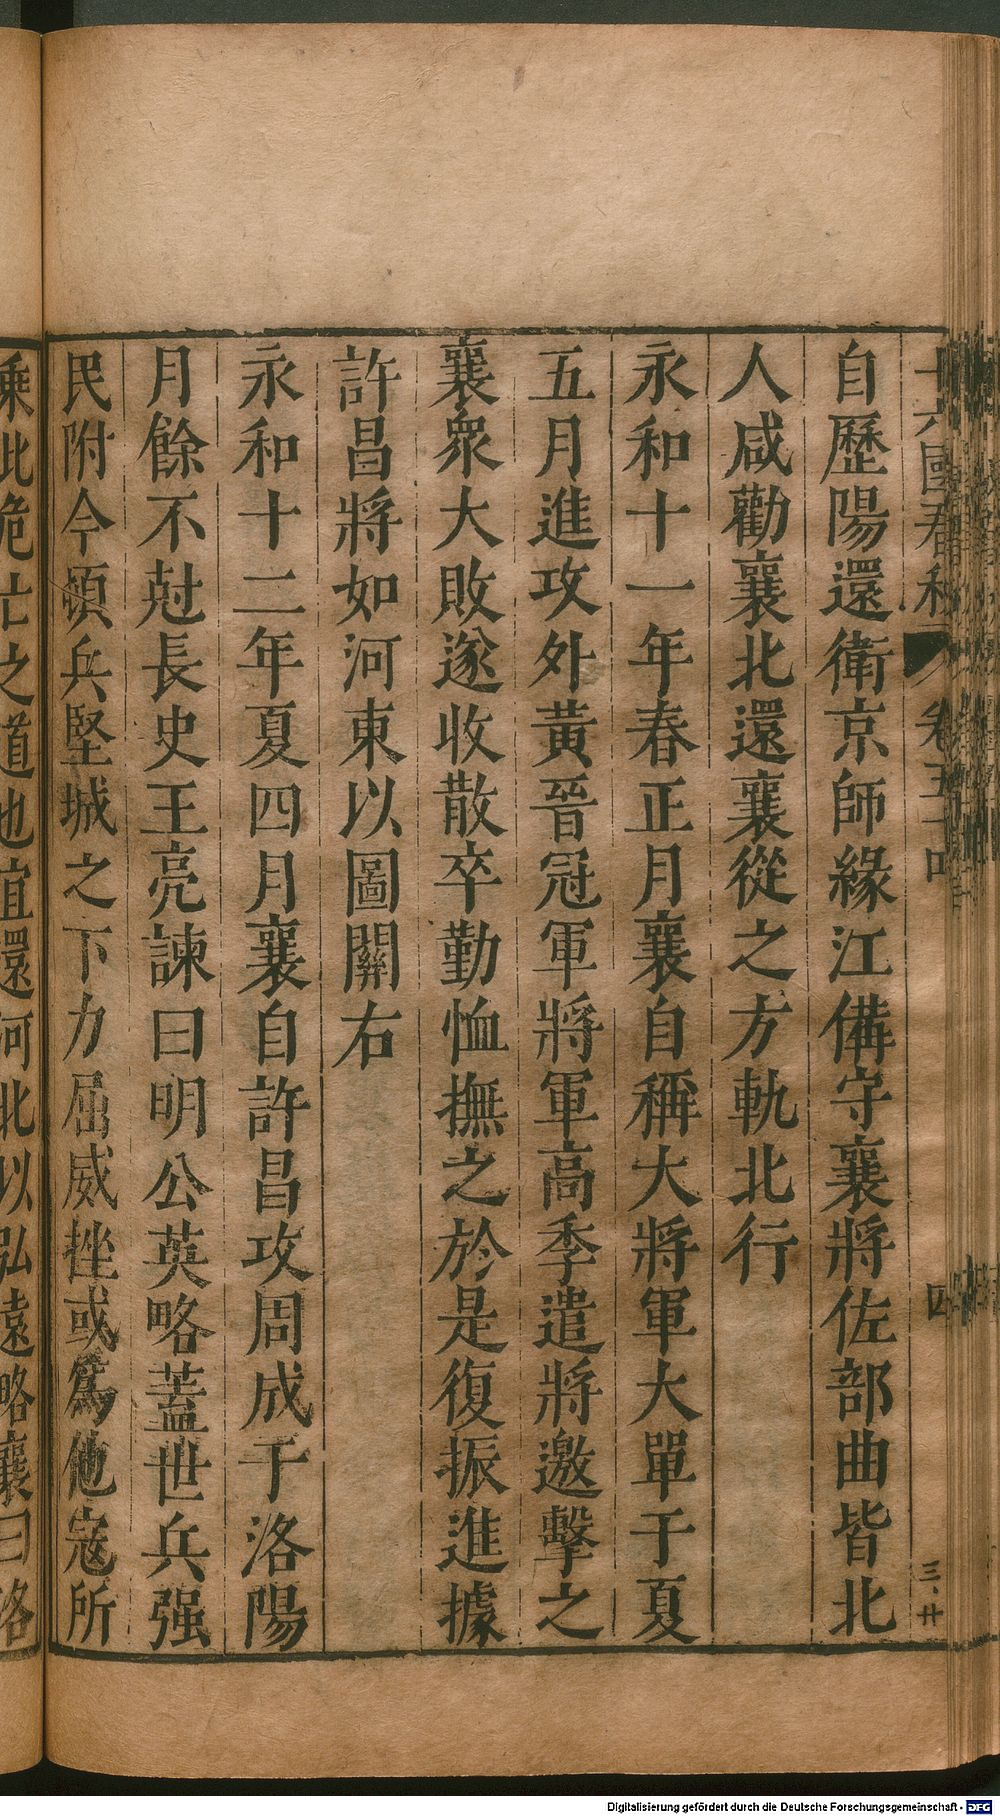 自歷陽還衛京師緣江備守襄將佐部曲皆北
人咸勸襄北還襄從之方軌北行
永和十一年春正月襄自稱大將軍大單于夏
五月進攻外黃晉冠軍將軍高季遣將邀擊之
襄衆大敗遂收散卒勤恤撫之於是復振進據
許昌將如河東以圖關右
永和十二年夏四月襄自許昌攻周成于洛陽
月餘不尅長史王亮諫曰明公英略蓋世兵强
民附今頓兵堅城之下力屈威挫或爲他寇所
乘此危亡之道也宜還河北以弘遠略襄曰洛
Digitalisierung gefördert durch die Deutsche Forschungsgemeinschaft - DFG